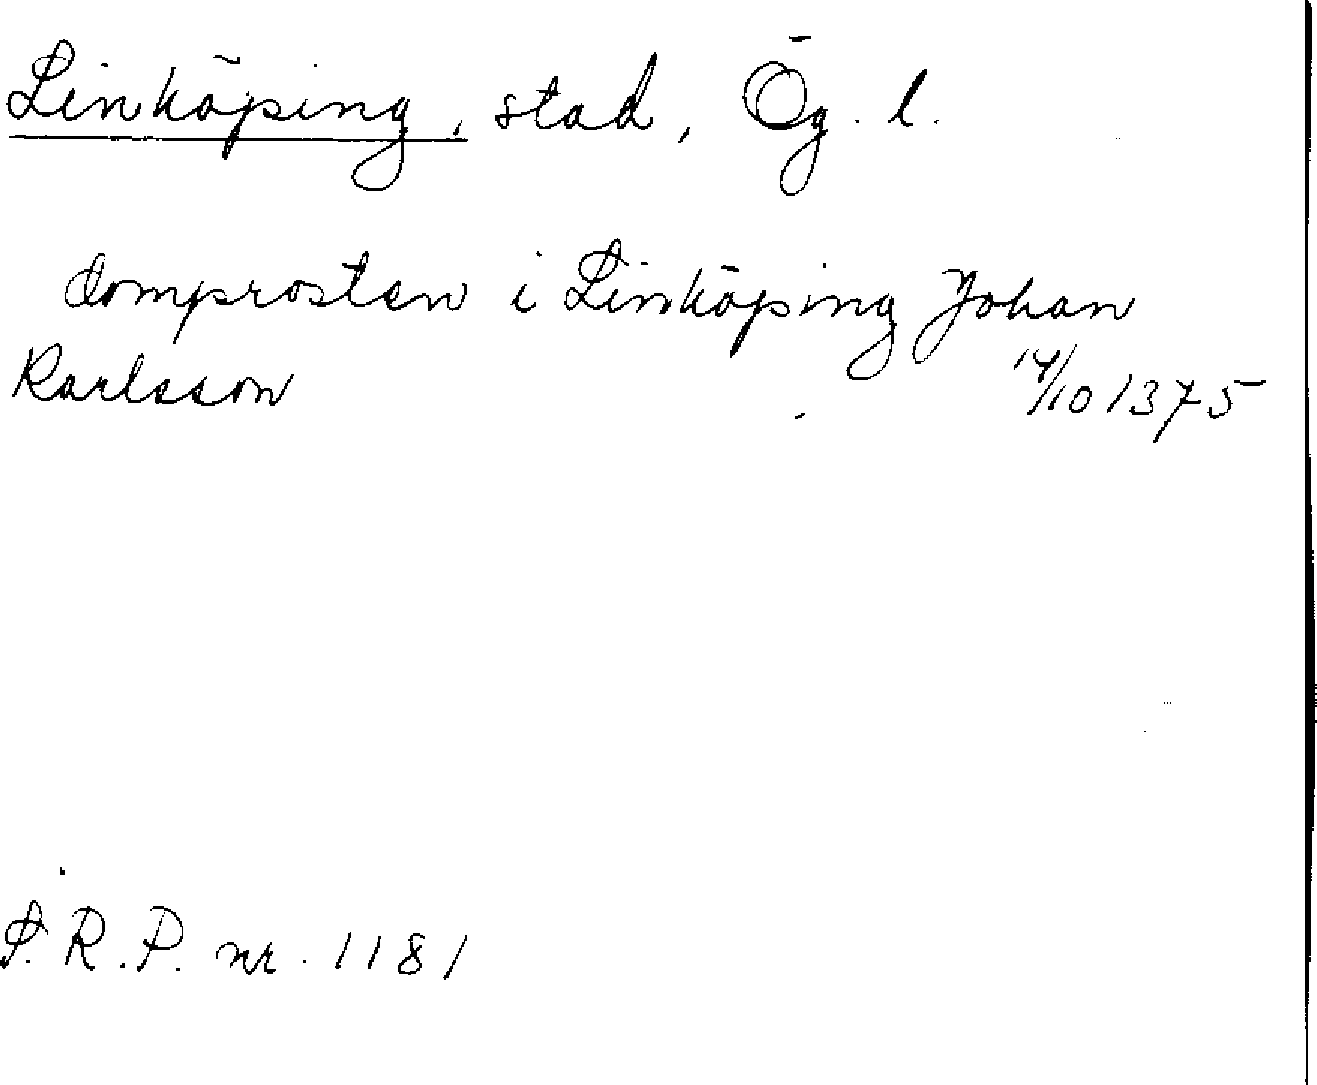 Linköping, stad, Ög. l.
domprosten i Linköping Johan
Karlsson 14/10 1375
S.R.P. nr. 1181